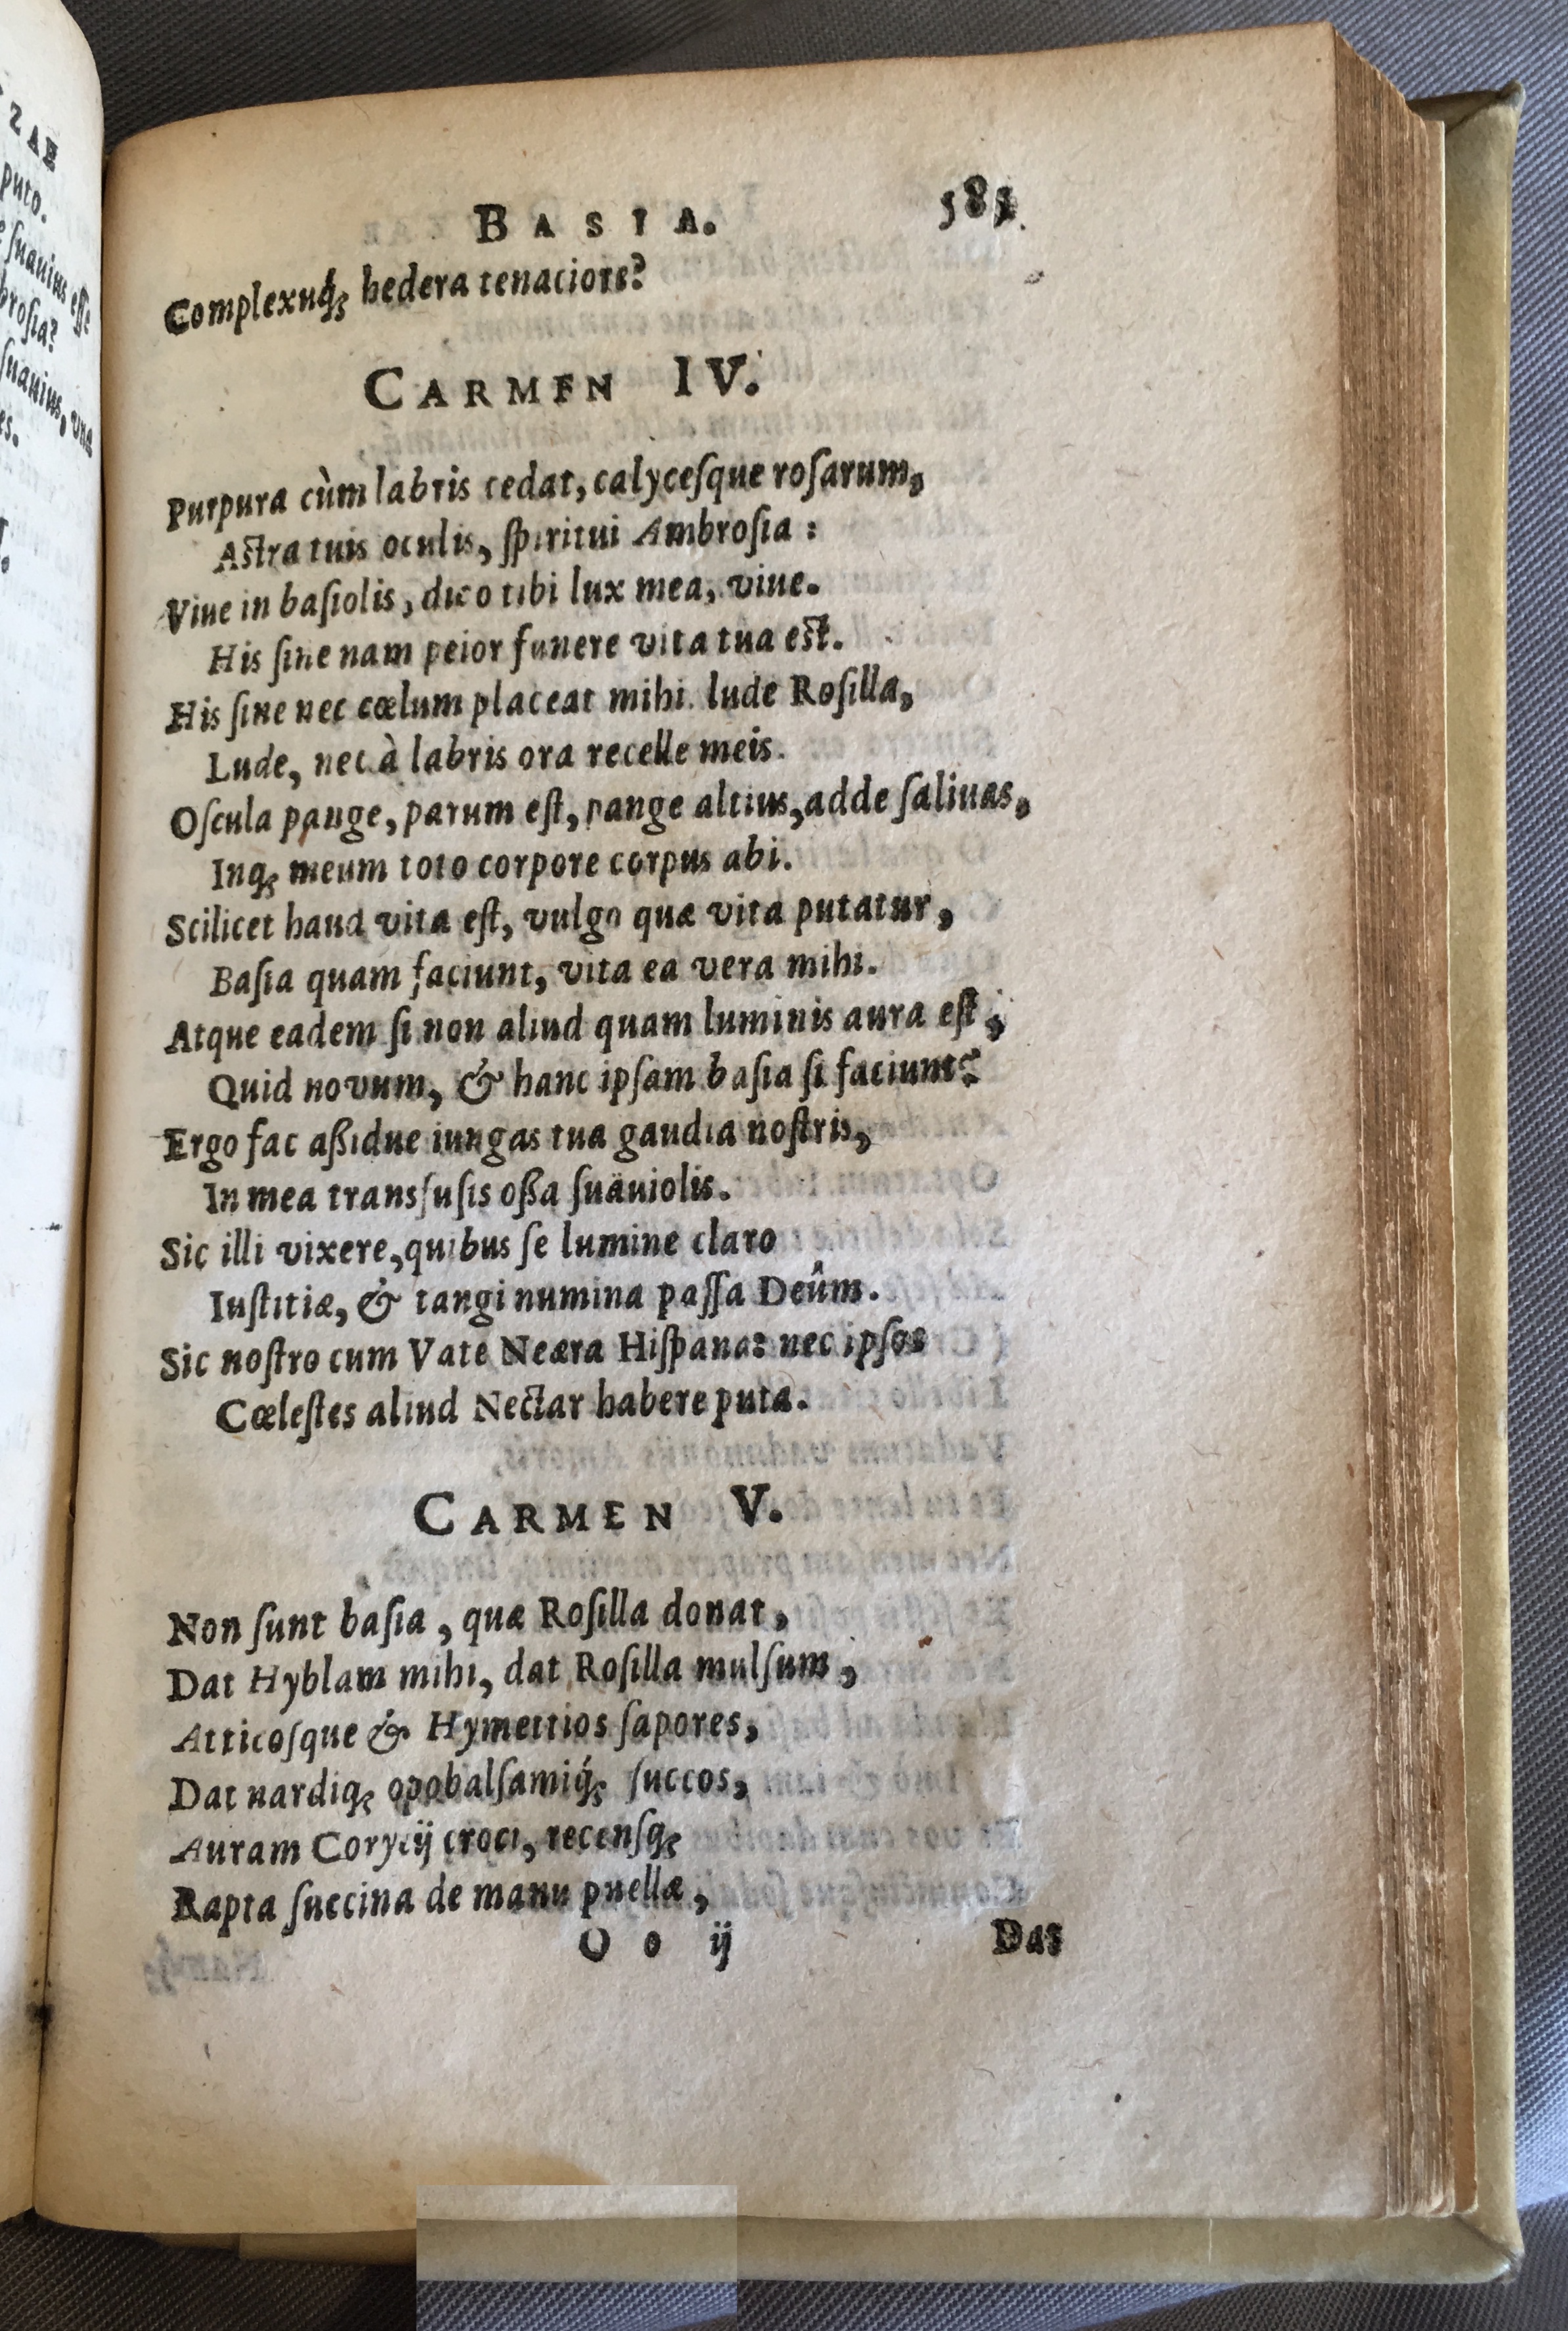 BASIA. 581
Complexuq́; hedera tenaciore?
CARMEN IV.
Purpura cùm labris cedat, calyceſque roſarum,
Aſtra tuis oculis, ſpiritui Ambroſia:
Viue in baſiolis, dico tibi lux mea, viue.
His ſine nam peior funere vita tua eſt.
His ſine nec cœlum placeat mihi. lude Roſilla,
Lude, nec à labris ora recelle meis.
Oſcula pange, parum eſt, pange altius, adde ſaliuas,
Inq; meum toto corpore corpus abi.
Scilicet haud vita eſt, vulgo quæ vita putatur,
Baſia quam faciunt, vita ea vera mihi.
Atque eadem ſi non aliud quam luminis aura eſt,
Quid novum, & hanc ipſam baſia ſi faciunt?
Ergo fac aßidue iungas tua gaudia noſtris,
In mea transfuſis oßa ſuäuiolis.
Sic illi vixere, quibus ſe lumine claro
Iuſtitiæ, & tangi numina paſſa Deûm.
Sic noſtro cum Vate Neæra Hiſpana: nec ipſos
Cœleſtes aliud Nectar habere puta.
CARMEN V.
Non ſunt baſia, quæ Roſilla donat,
Dat Hyblam mihi, dat Roſilla mulſum,
Atticoſque & Hymettios ſapores,
Dat nardiq; opobalſamiq́; ſuccos,
Auram Corycij croci, recenſq;
Rapta ſuccina de manu puellæ,
O o ij Dat